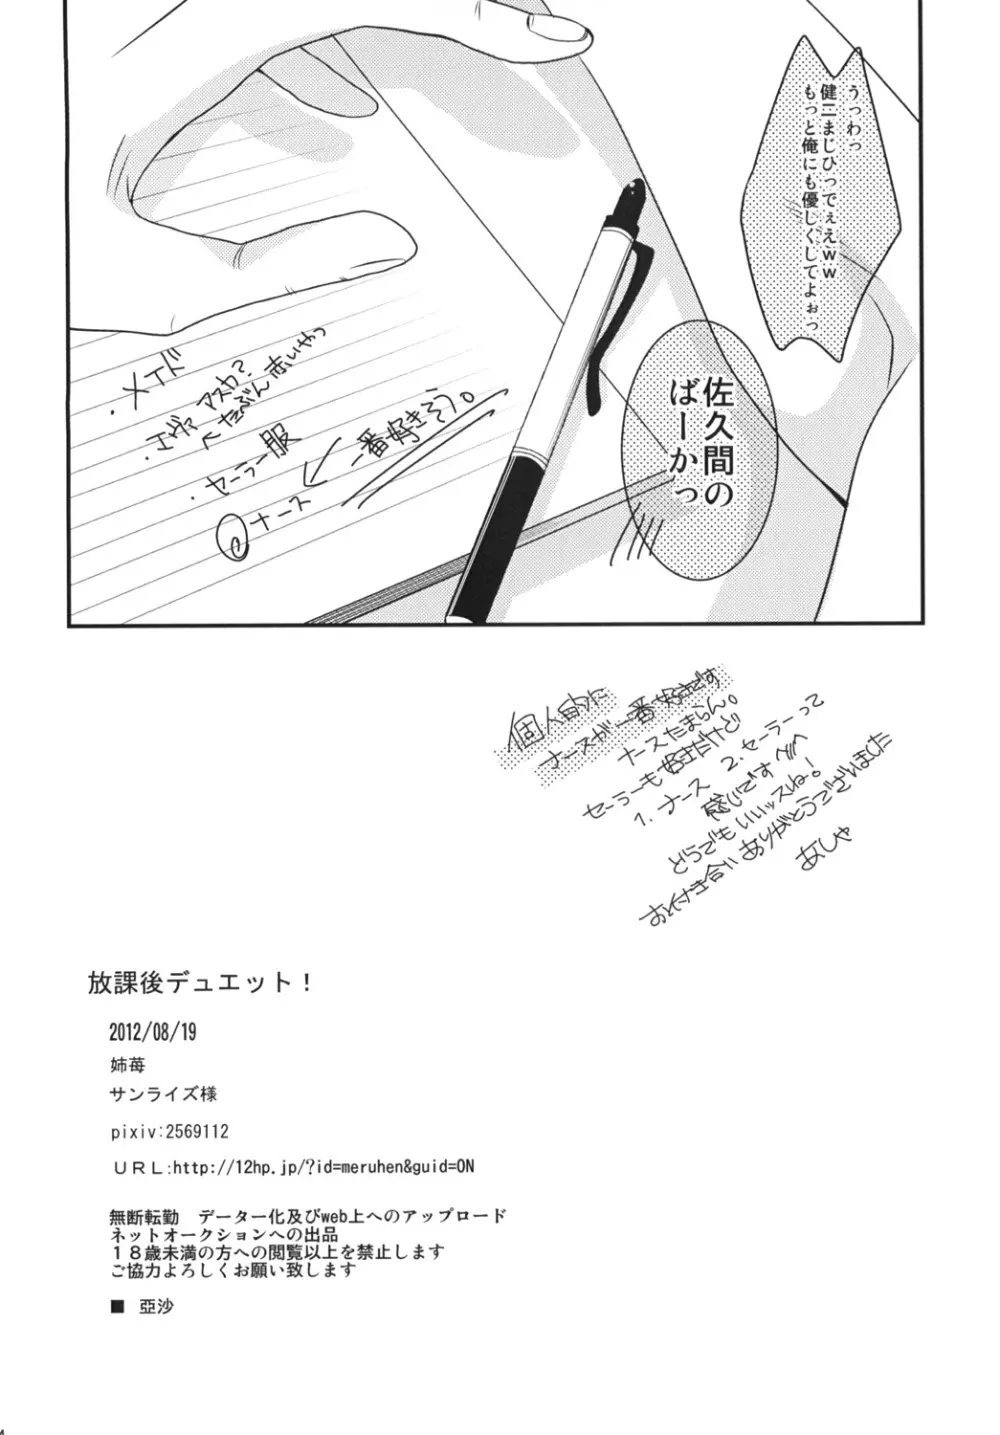 うっわっ
健二まじひってぇえww
もっと俺にも優しくしてよぉっ
佐久間の
ばーかっ
・メイド
・エヴァ アスカ?
たぶん赤いやつ
・セーラー服
ナース
一番好きそう。
個人的に
ナースが一番好きです
ナースたまらん。
セーラーも好きだけど
1. ナース 2. セーラーって
感じですぞ
どうでもいいッスね!
お付き合いありがとうございました
あしゃ
放課後デュエット!
2012/08/19
姉苺
サンライズ様
pixiv:2569112
URL:http://12hp.jp/?id=meruhen&guid=ON
無断転勤 データー化及びweb上へのアップロード
ネットオークションへの出品
18歳未満の方への閲覧以上を禁止します
ご協力よろしくお願い致します
■ 亞沙